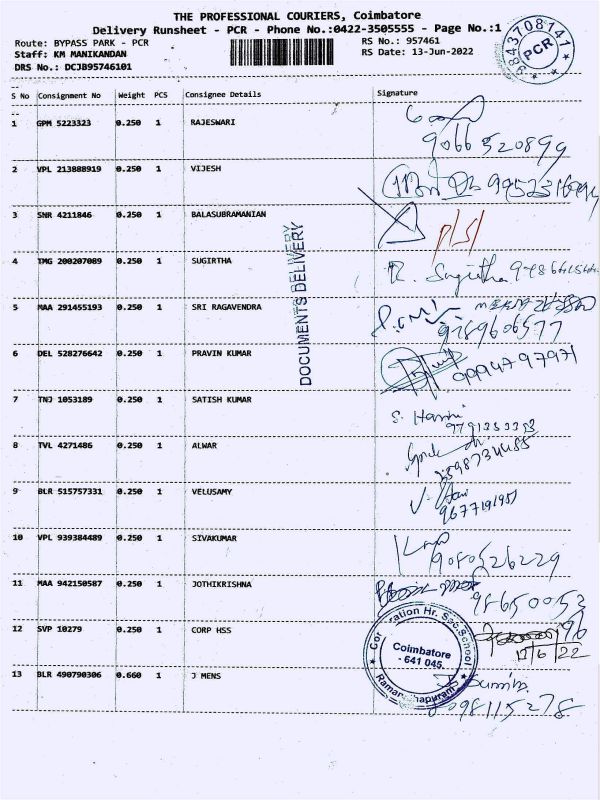 THE PROFESSIONAL COURIERS, Coimbatore
Delivery Runsheet - PCR - Phone No.:0422-3505555 - Page No.:1
Route: BYPASS PARK - PCR
RS No.: 957461
Staff: KM MANIKANDAN
RS Date: 13-Jun-2022
DRS No.: DCJB95746101
9843708141
PCR
S No Consignment No Weight PCS Consignee Details Signature
1 GPM 5223323 0.250 1 RAJESWARI
9066520899
2 VPL 213888919 0.250 1 VIJESH
3 SNR 4211846 0.250 1 BALASUBRAMANIAN
4 TMG 200207089 0.250 1 SUGIRTHA
R. Sugirtha
DOCUMENTS DELIVERY
5 MAA 291455193 0.250 1 SRI RAGAVENDRA
9789606577
6 DEL 528276642 0.250 1 PRAVIN KUMAR
9994797971
7 TNJ 1053189 0.250 1 SATISH KUMAR
8 TVL 4271486 0.250 1 ALWAR
9 BLR 515757331 0.250 1 VELUSAMY
10 VPL 939384489 0.250 1 SIVAKUMAR
9080526229
11 MAA 942150587 0.250 1 JOTHIKRISHNA
12 SVP 10279 0.250 1 CORP HSS
Corporation Hr. Sec. School
Coimbatore
- 641 045.
Ramanathapuram
13/6/22
13 BLR 490790306 0.660 1 J MENS